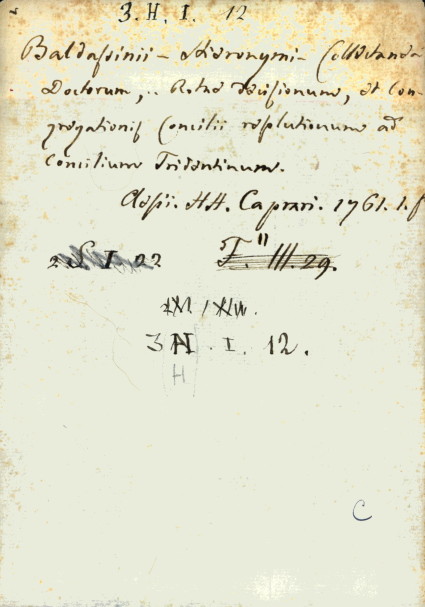 3. H. I. 12
Baldassinii - Hieronymi - Collectanea
Doctorum, .. Rotae decisionum, et Con-
gregationis Concilii resolutionum ad
Concilium Tridentinum.
Aesii. HH. Caprari. 1761. 1. f
I. 22
F. III. 29.
3 H. I. 12.
H
C